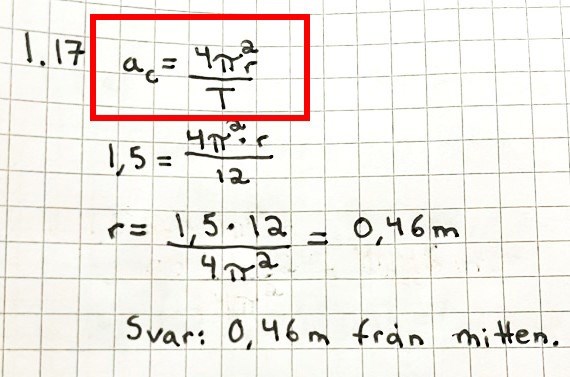 1.17 a_c = 4π²r / T
1,5 = 4π²·r / 12
r = 1,5·12 / 4π² = 0,46m
Svar: 0,46m från mitten.